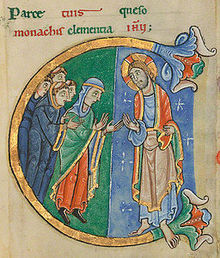 Parce tuis queso
monachis clementia ihu